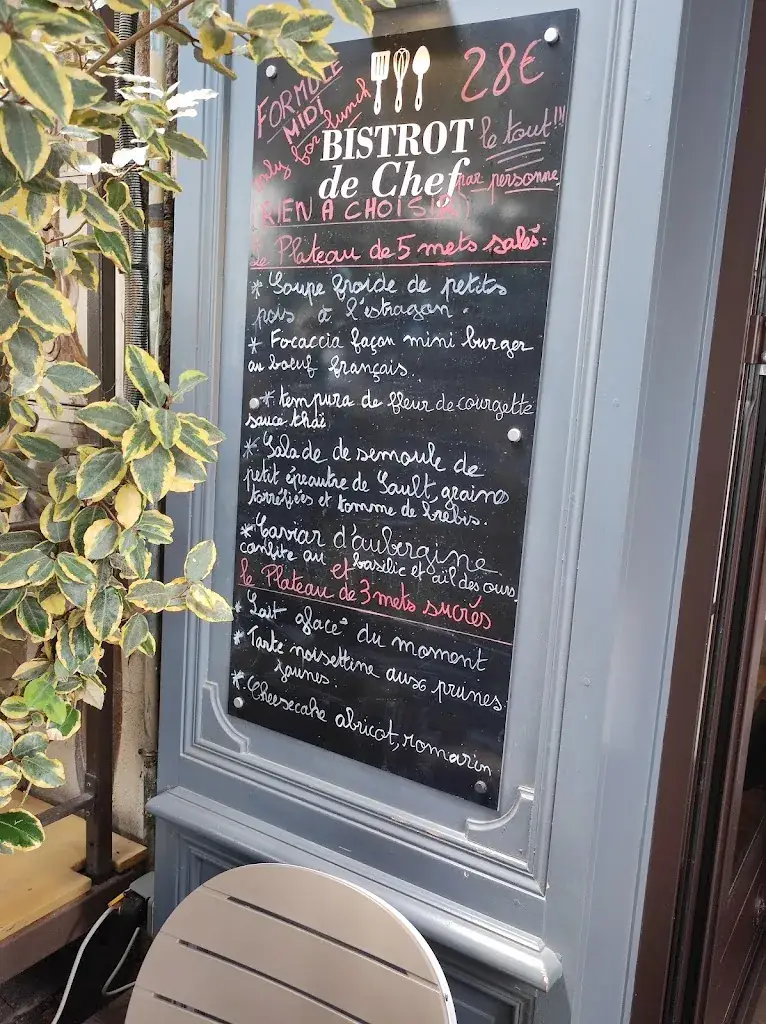 FORMULE
MIDI
only for lunch
28€
BISTROT
de Chef
le tout!!!
par personne
RIEN A CHOISIR
Le Plateau de 5 mets salés:
* Soupe froide de petits
pois à l'estragon.
* Focaccia façon mini burger
au boeuf français.
* tempura de fleur de courgette
sauce thaï
* Salade de semoule de
petit épeautre de Sault, graines
torréfiées et tomme de brebis.
* Caviar d'aubergine
confite au basilic et aïl des ours,
et
le Plateau de 3 mets sucrés
* Lait glacé du moment
* Tarte noisettine aux prunes
jaunes.
* Cheesecake abricot, romarin